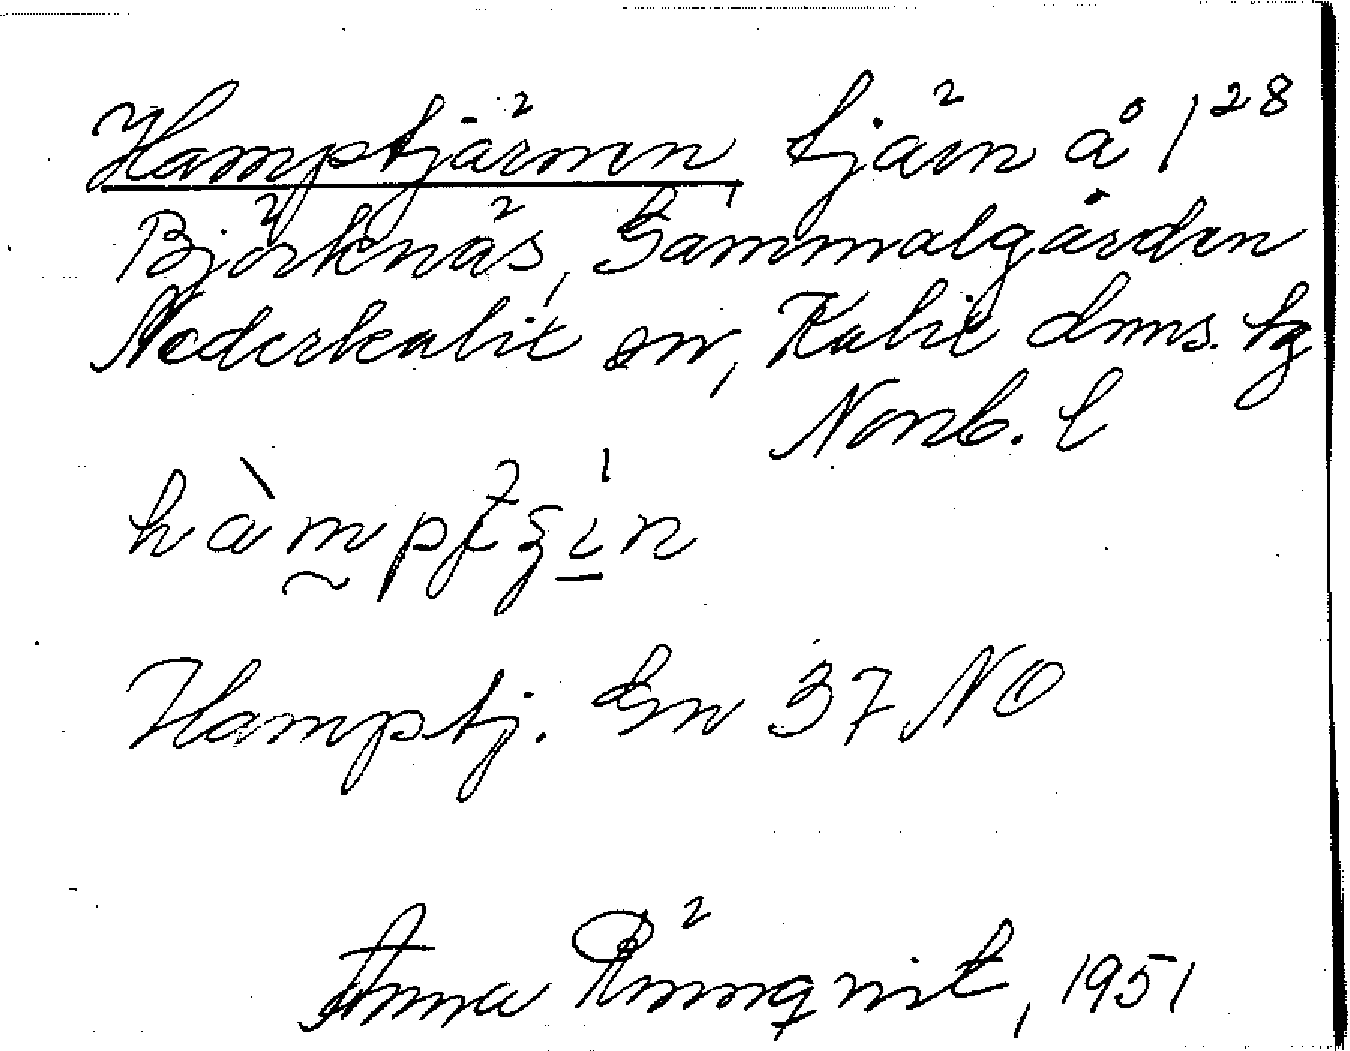 Hamptjärnen tjärn å 1²⁸
Björknäs, Gammalgården
Nederkalix sn, Kalix dms. tg
Norrb. l
Hamptj. Gn 37 NO
Anna Rönnqvist, 1951